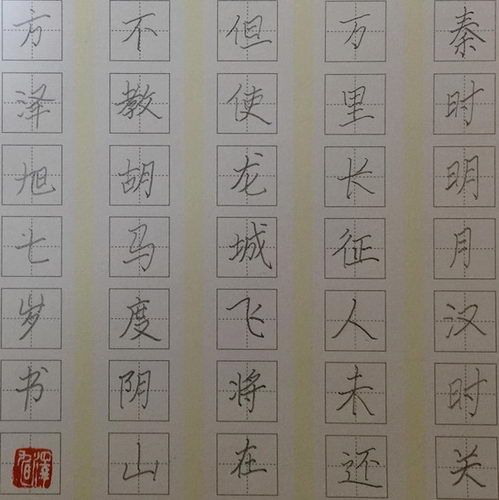 秦时明月汉时关
万里长征人未还
但使龙城飞将在
不教胡马度阴山
方泽旭七岁书